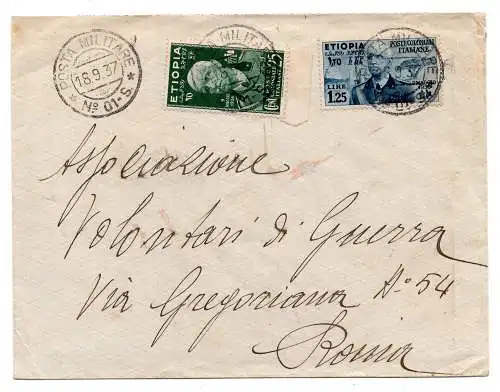 POSTA MILITARE
18.9.37
Nº 01-S.
ETIOPIA
CENT. 25
ETIOPIA
POSTE COLONIALI
ITALIANE
LIRE
1.25
Associazione
Volontari di Guerra
Via Gregoriana Nº 54
Roma